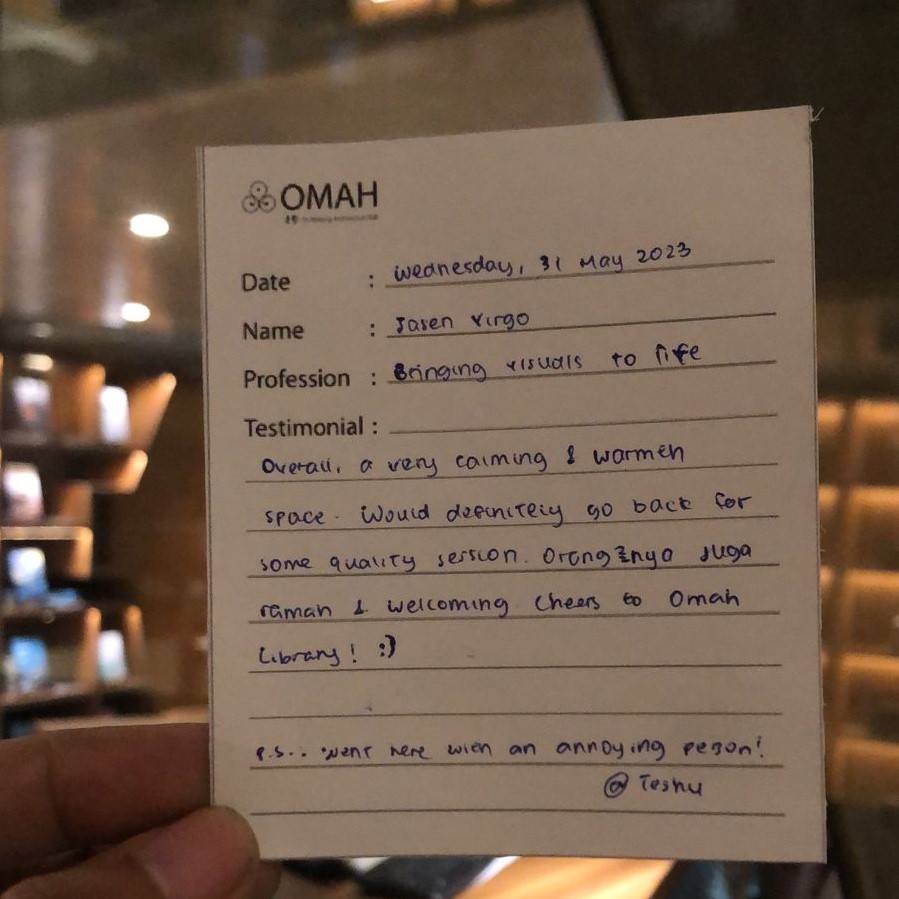 OMAH
Date : Wednesday, 31 May 2023
Name : Jasen Virgo
Profession : Bringing visuals to life
Testimonial :
Overall, a very calming & warmth
space. Would definitely go back for
some quality session. Orang2nya juga
ramah & welcoming. Cheers to Omah
Library! :)
P.S... Went here with an annoying person!
@Teshu